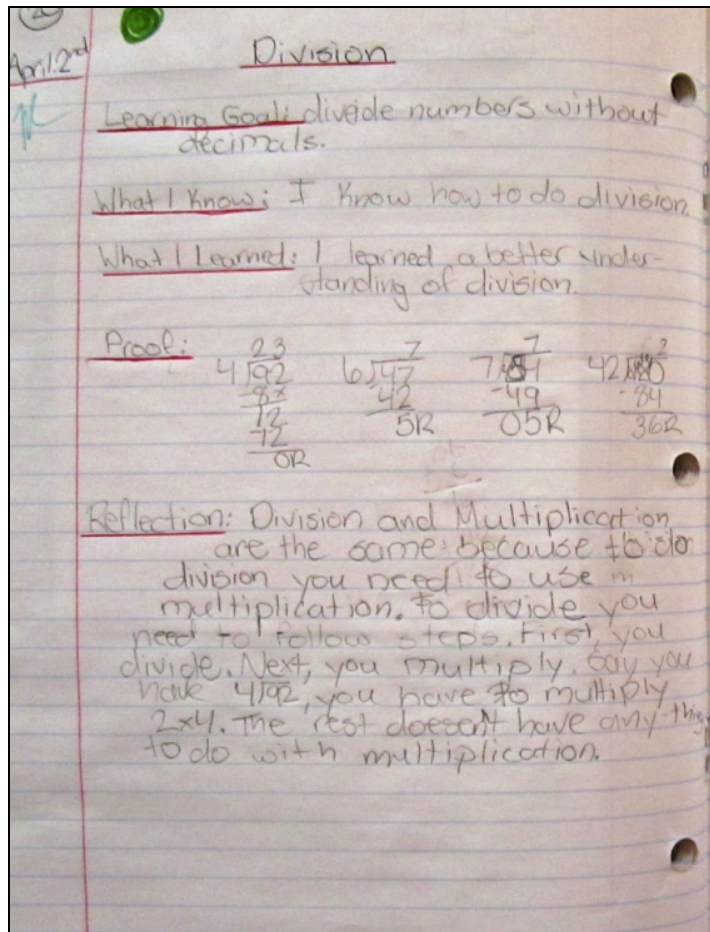 April 2nd
Division
Learning Goal: diveide numbers without
decimals.
What I Know: I know how to do division.
What I Learned: I learned a better under-
standing of division.
Proof:
23 7 7 2
4)92 6)47 7)54 42)120
-8x 42 -49 -84
12 5R 05R 36R
12
0R
Reflection: Division and Multiplication
are the same because to do
division you need to use
multiplication. to divide you
need to follow steps. First, you
divide. Next, you multiply. Say you
have 4)92, you have to multiply
2x4. The rest doesent have any thing
to do with multiplication.